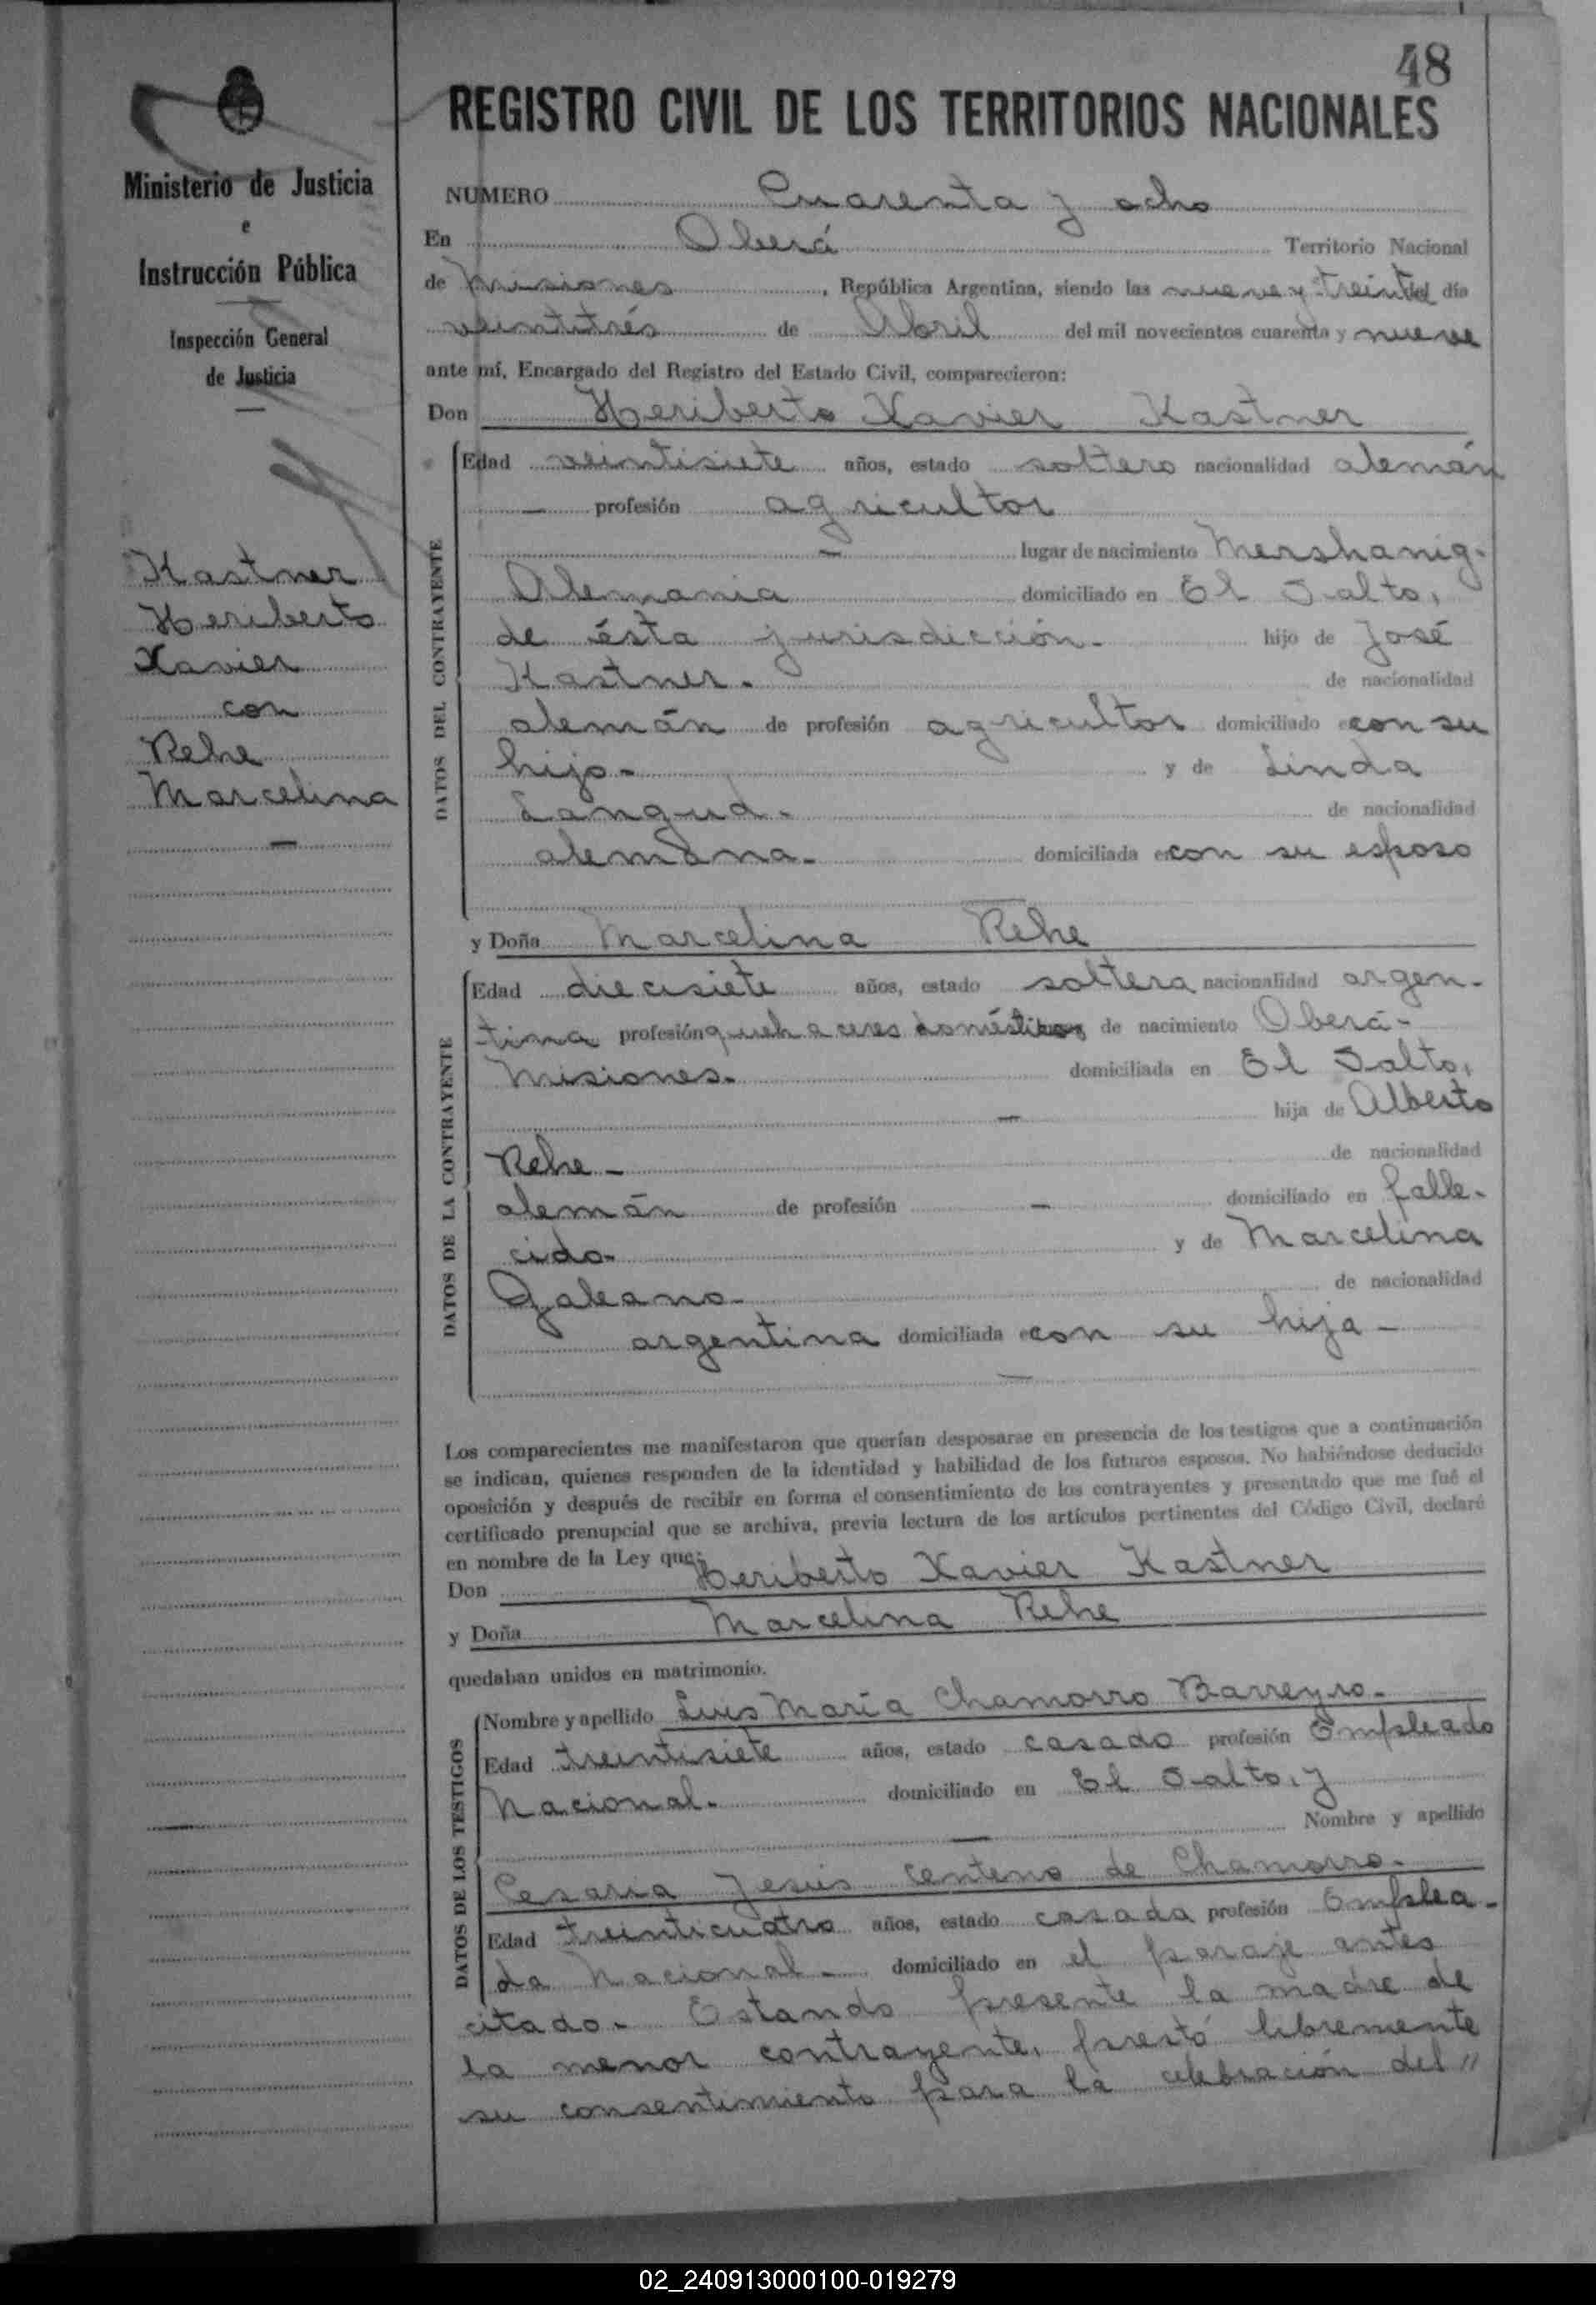 48
REGISTRO CIVIL DE LOS TERRITORIOS NACIONALES
Ministerio de Justicia
e
Instrucción Pública
Inspección General
de Justicia
Kastner
Heriberto
Xavier
con
Rehe
Marcelina
NUMERO Cuarenta y ocho
En Oberá Territorio Nacional
de Misiones, República Argentina, siendo las nueve y treinta del día
veintitrés de Abril del mil novecientos cuarenta y nueve
ante mí, Encargado del Registro del Estado Civil, comparecieron:
Don Heriberto Xavier Kastner
DATOS DEL CONTRAYENTE
Edad veintisiete años, estado soltero nacionalidad alemán
— profesión agricultor
— lugar de nacimiento Mershanig.
Alemania domiciliado en El Salto,
de ésta jurisdicción.- hijo de José
Kastner.- de nacionalidad
alemán de profesión agricultor domiciliado con su
hijo.- y de Linda
Langud.- de nacionalidad
alemana.- domiciliada con su esposo
y Doña Marcelina Rehe
DATOS DE LA CONTRAYENTE
Edad diecisiete años, estado soltera nacionalidad argen-
tina profesión quehaceres domésticos de nacimiento Oberá-
Misiones.- domiciliada en El Salto,
— hija de Alberto
Rehe - de nacionalidad
alemán de profesión — domiciliado en falle-
cido- y de Marcelina
Galeano- de nacionalidad
argentina domiciliada con su hija -
Los comparecientes me manifestaron que querían desposarse en presencia de los testigos que a continuación
se indican, quienes responden de la identidad y habilidad de los futuros esposos. No habiéndose deducido
oposición y después de recibir en forma el consentimiento de los contrayentes y presentado que me fué el
certificado prenupcial que se archiva, previa lectura de los artículos pertinentes del Código Civil, declaré
en nombre de la Ley que:
Don Heriberto Xavier Kastner
y Doña Marcelina Rehe
quedaban unidos en matrimonio.
DATOS DE LOS TESTIGOS
Nombre y apellido Luis María Chamorro Barreyro.-
Edad treintisiete años, estado casado profesión Empleado
Nacional.- domiciliado en El Salto, y
— Nombre y apellido
Cesaria Jesús Centeno de Chamorro.-
Edad treinticuatro años, estado casada profesión Emplea-
da Nacional.- domiciliado en el paraje antes
citado.- Estando presente la madre de
la menor contrayente, prestó libremente
su consentimiento para la celebración del //
02_240913000100-019279